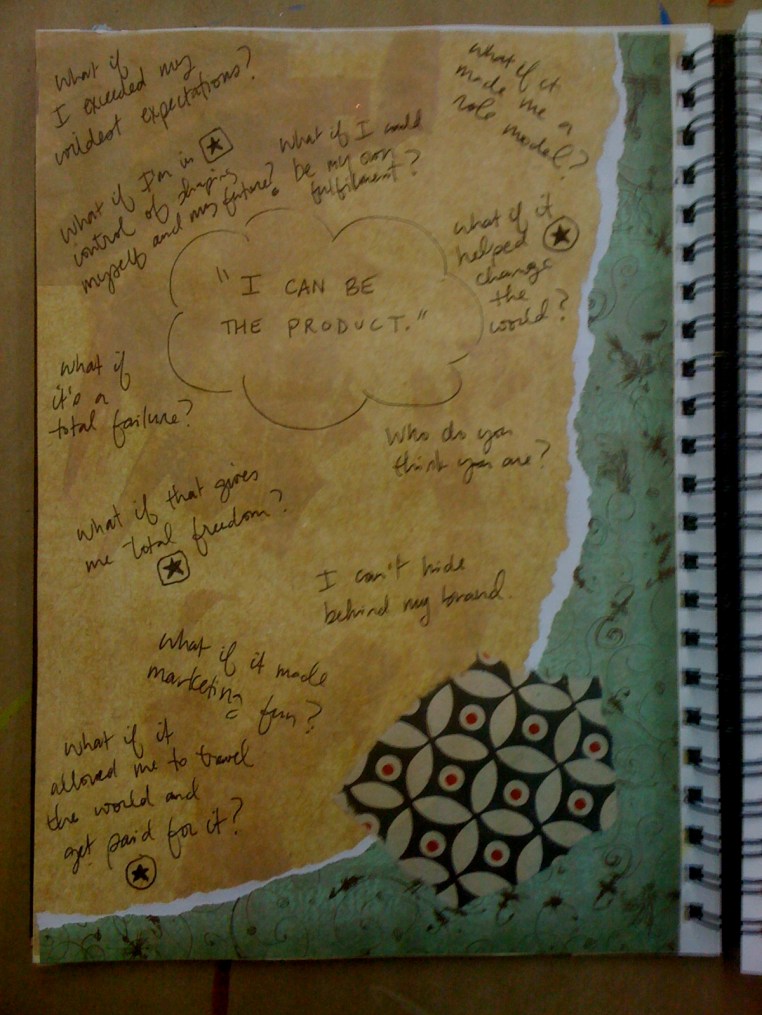 what if
I exceeded my
wildest expectations?
what if it
made me a
role model?
What if I'm in
control of shaping
myself and my future?
what if I could
be my own
fulfilment?
what if it
helped
change
the
world?
"I CAN BE
THE PRODUCT."
what if
it's a
total failure?
Who do you
think you are?
what if that gives
me total freedom?
I can't hide
behind my brand.
what if it made
marketing fun?
what if it
allowed me to travel
the world and
get paid for it?